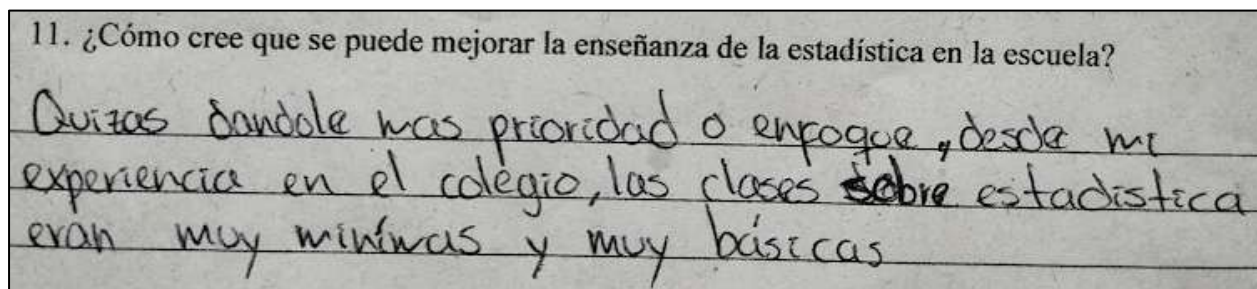 11. ¿Cómo cree que se puede mejorar la enseñanza de la estadística en la escuela?
Quizas dandole mas prioridad o enfoque, desde mi
experiencia en el colegio, las clases sobre estadistica
eran muy minímas y muy básicas